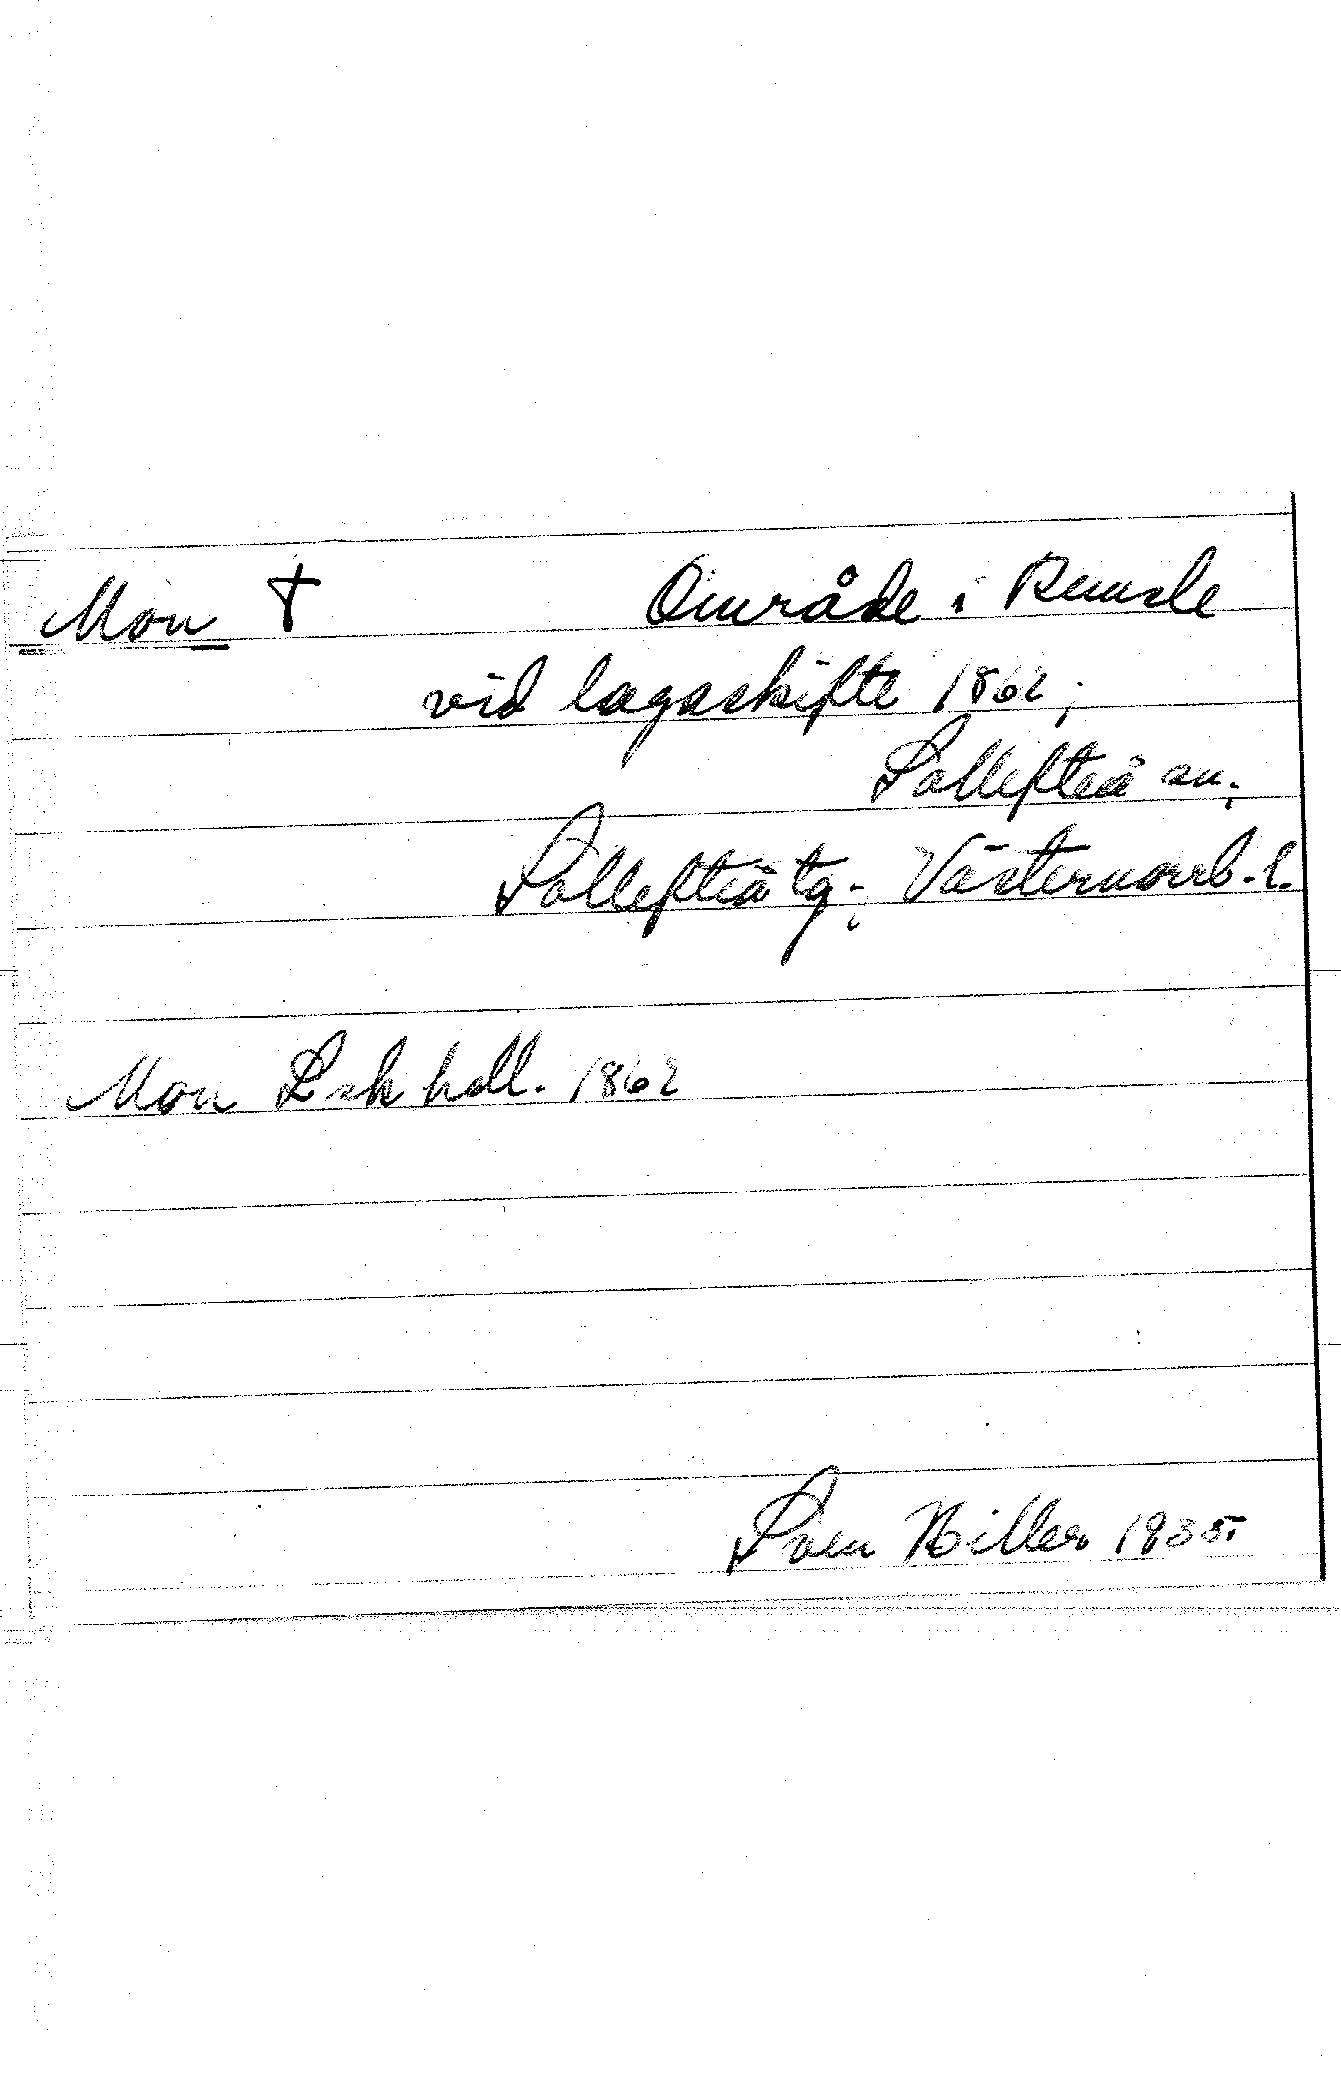 Mon † Område i Remsle
vid lagaskifte 1862;
Sollefteå sn;
Sollefteå tg; Västernorrl. l.
Mon Lsk hdl. 1862
Sven Hiller 1935